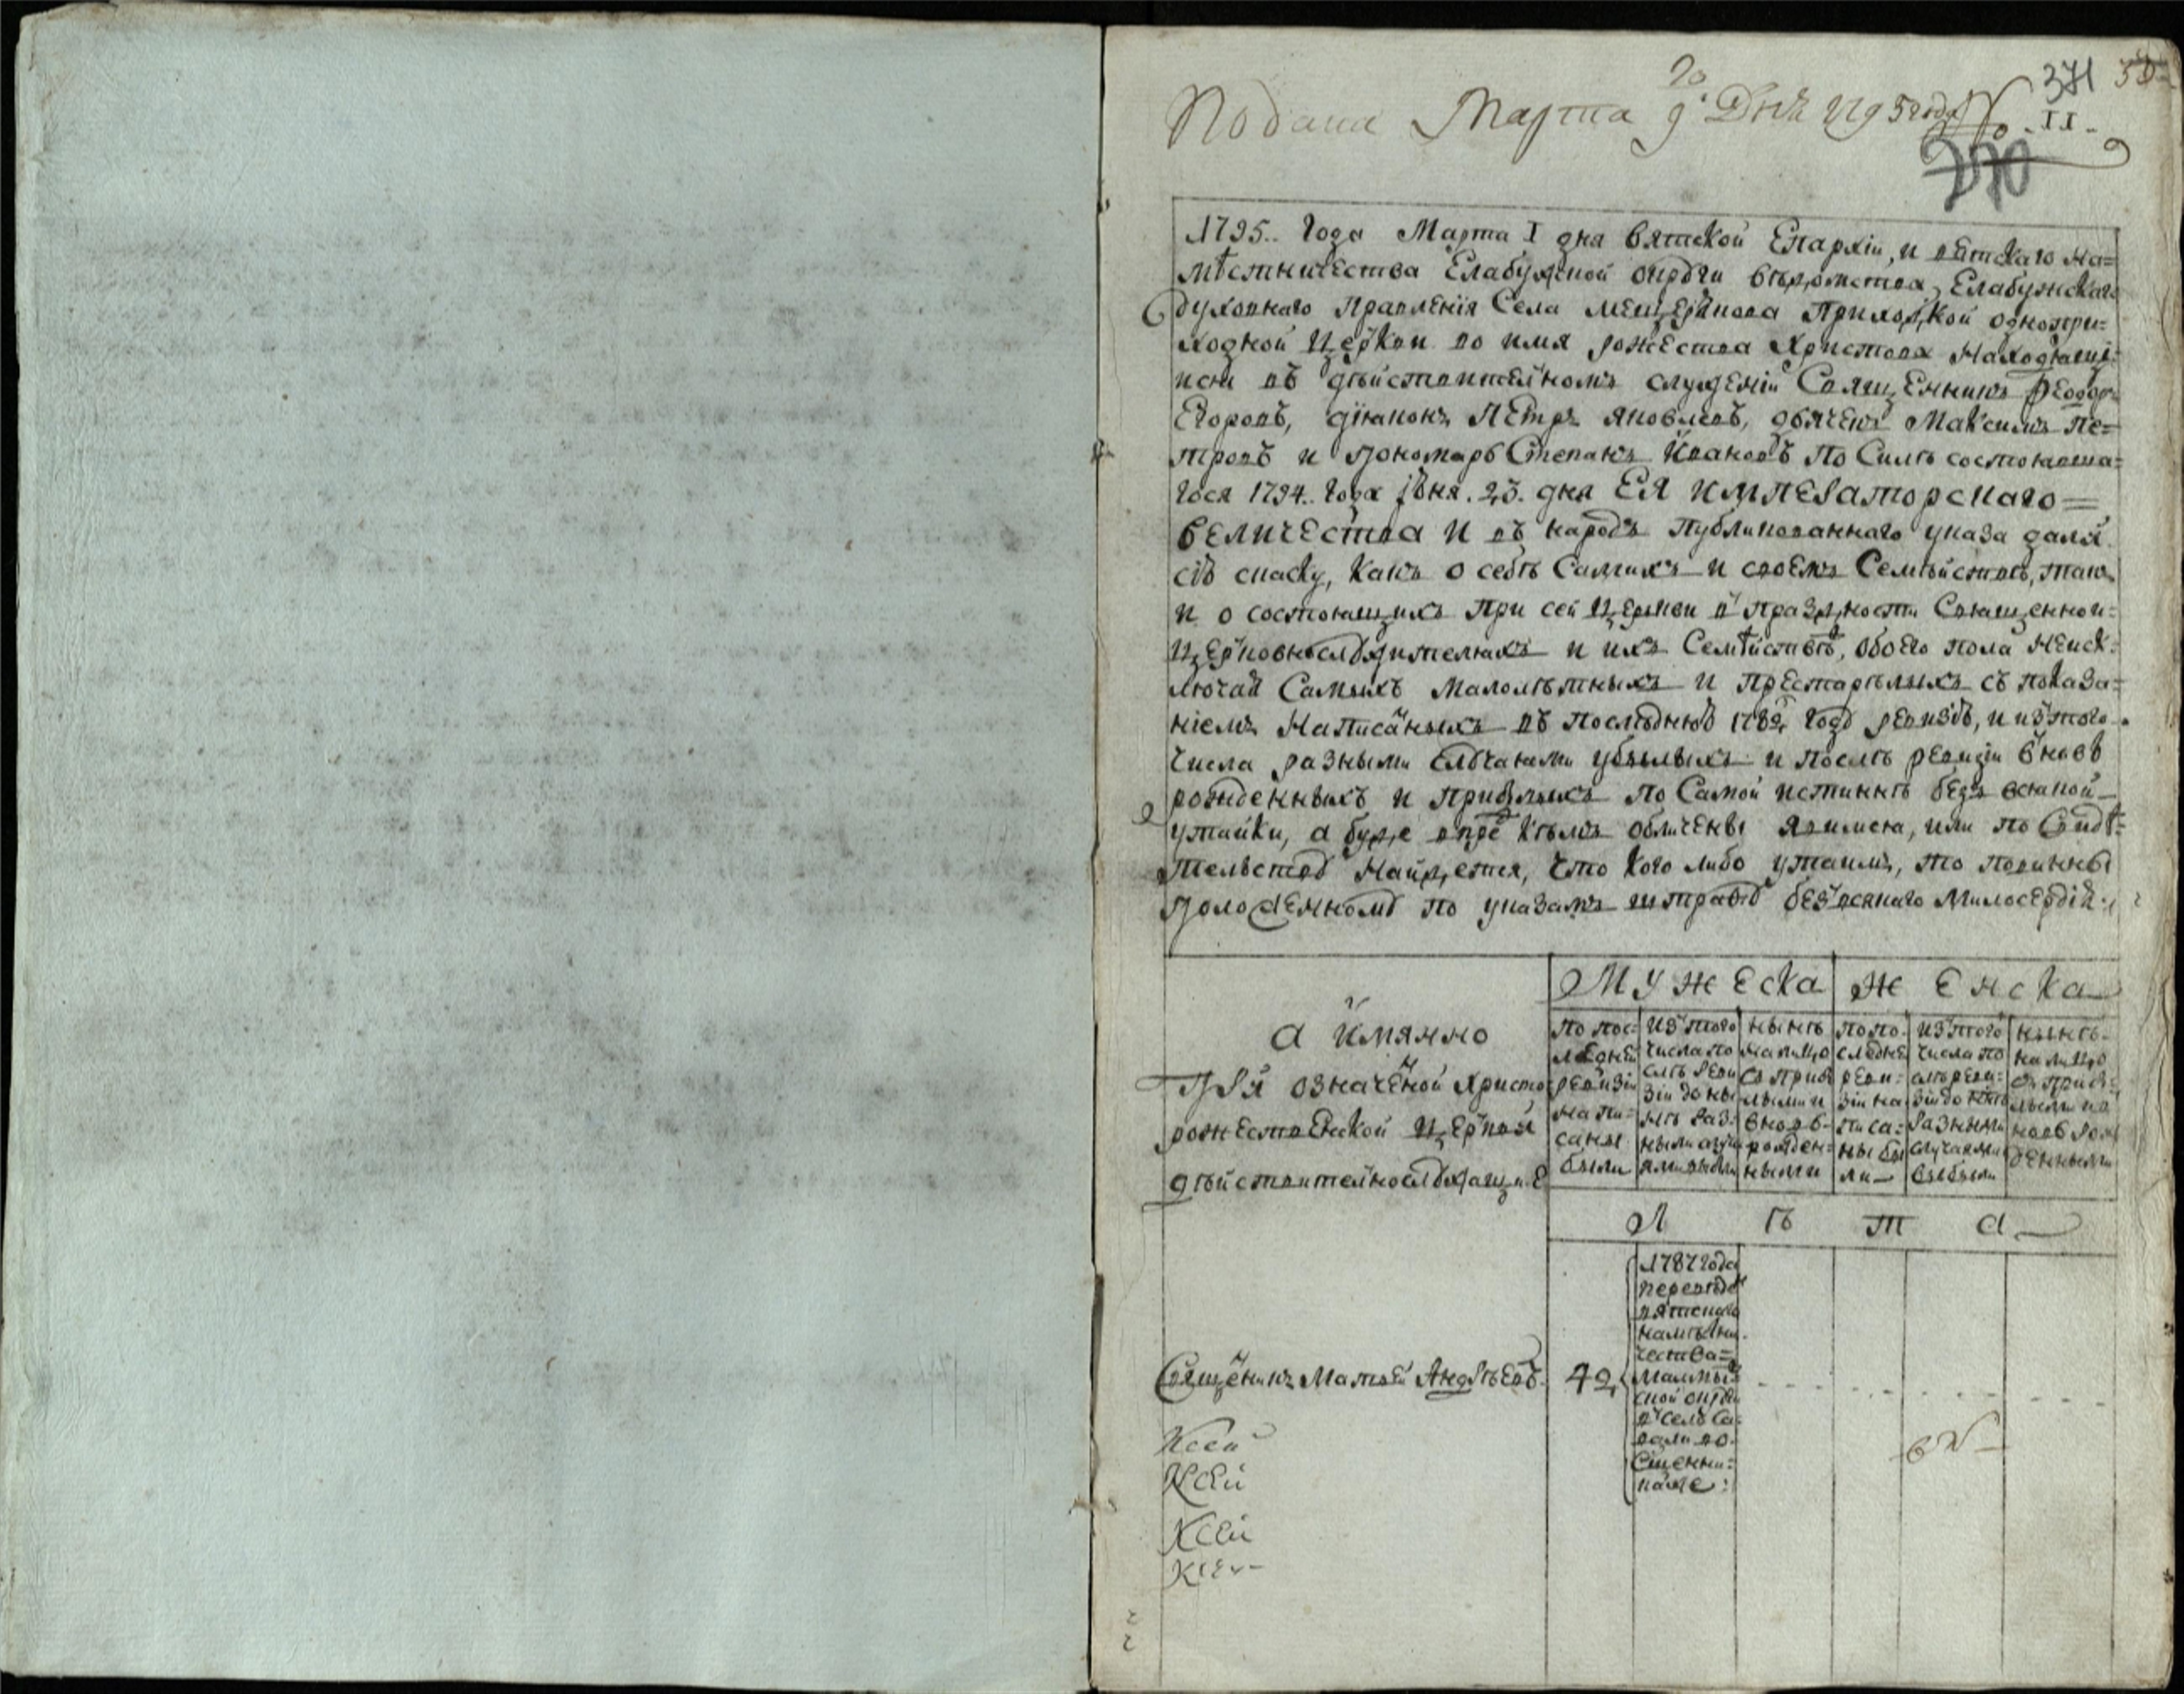 Подана Марта 9го Дня 1795 года № 11
371
270
1795. года Марта I дня вятской Епархіи, и вятскаго на=
мѣстничества Елабужской округи вѣдомства, Елабужскаго
духовнаго Правленія Села Мещерякова Приходской однопри=
ходной церкви во имя рожества Христова находящі=
иси въ дѣйствителномъ служеніи Священникъ Ѳеодоръ
Егоровъ, діяконъ Петръ яковлевъ, дьячекъ Максимъ Пе=
тровъ и пономарь Степанъ Ивановъ По Силѣ состоявша=
гося 1794. года Іюня. 23. дня ЕЯ ИМПЕРАТОРСКАГО=
ВЕЛИЧЕСТВА и въ народъ публикованнаго указа дали
сію скаску, какъ о себѣ Самихъ и своемъ Семѣйствѣ, такъ
и о состоящихъ при сей церкви в праздности Священно и=
церковнослужителяхъ и ихъ Семѣйствѣ, обоего пола неиск=
лючая Самыхъ малолѣтныхъ и престарѣлыхъ съ показа=
ніемъ написанныхъ въ последнюю 1782 году ревизію, и изъ того
числа разными случаями убылыхъ и послѣ ревизіи вновь
рожденныхъ и прибылыхъ по Самой истиннѣ безъ всякой
утайки, а буде впредь кѣмъ обличены явимся, или по Свидѣ=
телству найдется, что кого либо утаимъ, то повинны
положенному по указамъ штрафу безъ всякаго Милосердія.
а Имянно
При означеной Христо=
рожественской церкви
дѣйствителнослужащие
Мужеска
Женска
По пос=
ледней
ревизіи
напи=
саны
были
изъ того
числа по
слѣ реви
зіи до ны
нѣ раз=
ными случа
ями выбыли
нынѣ
на лицо
съ прибы
лыми и
вновь
рожден=
ными
по по=
следней
реви=
зіи на
писа=
ны бы
ли
изъ того
числа по
слѣ реви=
зіи до нынѣ
разными
случаями
выбыли
нынѣ
на лицо
съ прибы=
лыми и в
новь рож
денными
Л ѣ т а
Священикъ Матвей Андрѣевъ
42
1787 года
переведенъ
вятскаго
намѣстни
чества
Малмы=
ской округи
в село Са
вали во
Священни=
ки же
Ксей
Ксей
Ксей